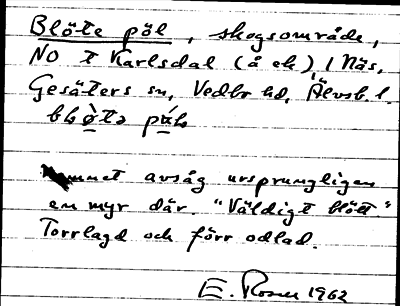 Blöte pöl, skogsområde,
NO t Karlsdal (å ek) / Näs,
Gesäters sn, Vedbo hd, Älvsb. l.
Namnet avsåg ursprungligen
en myr där. "Väldigt blött"
Torrlagd och förr odlad.
E. Rosen 1962